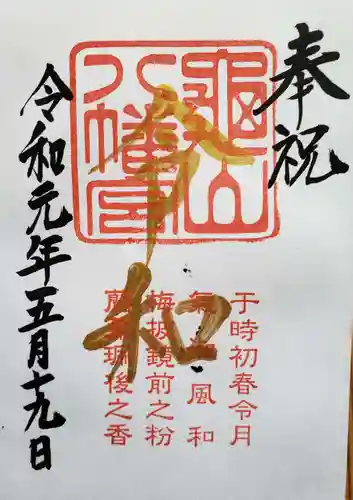 奉祝
亀山
八幡宮
令和
于時初春令月
氣淑風和
梅披鏡前之粉
蘭薫珮後之香
令和元年五月十九日